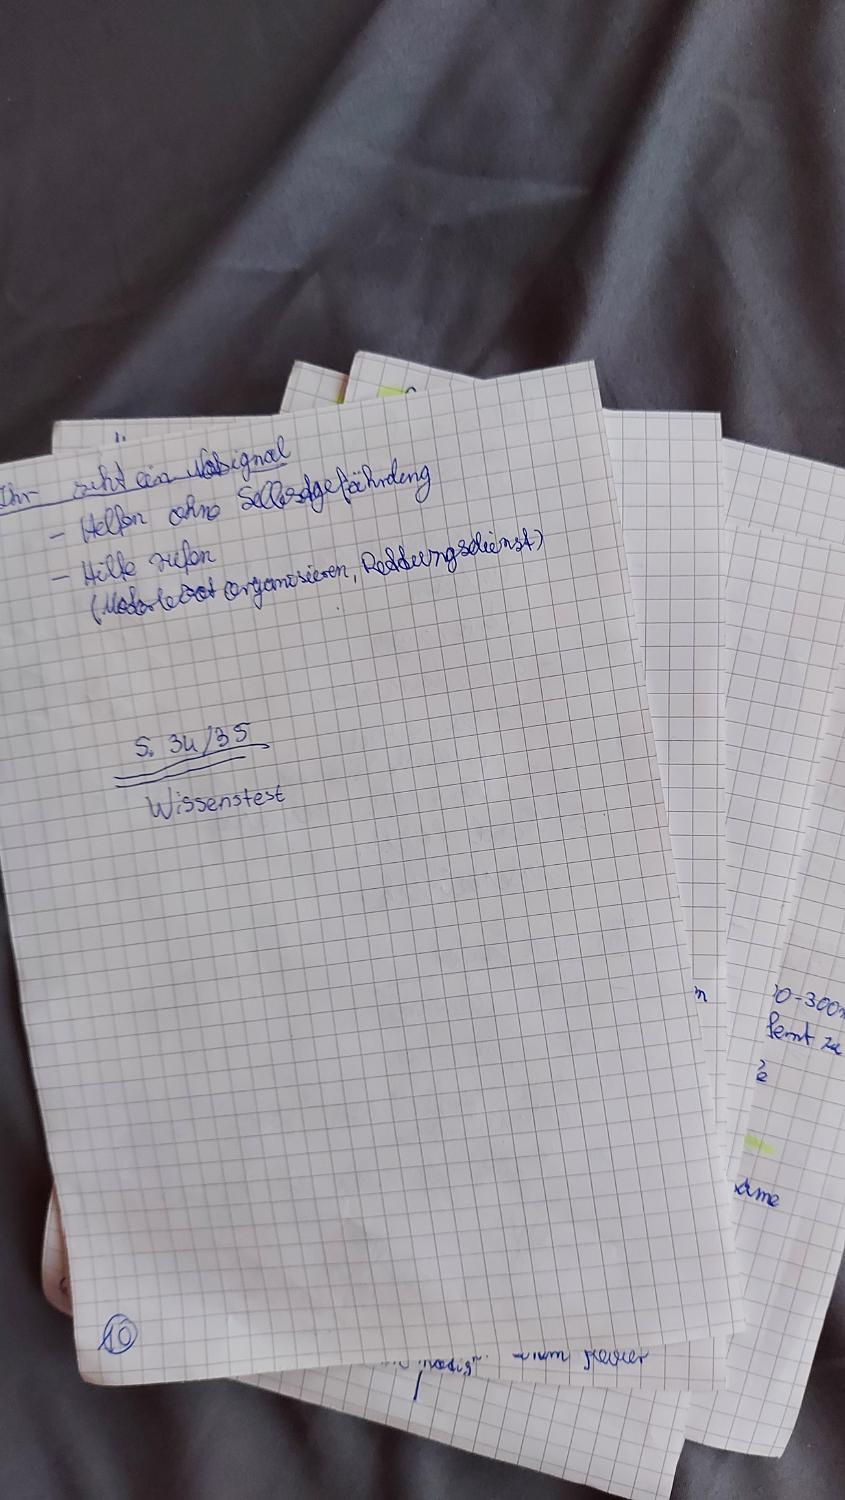 Ihr seht ein Notsignal
- Helfen ohne Selbstgefährdung
- Hilfe rufen
(Motorboot organisieren, Rettungsdienst)
S. 34/35
Wissenstest
n
0-300m
fernt zu
ame
10